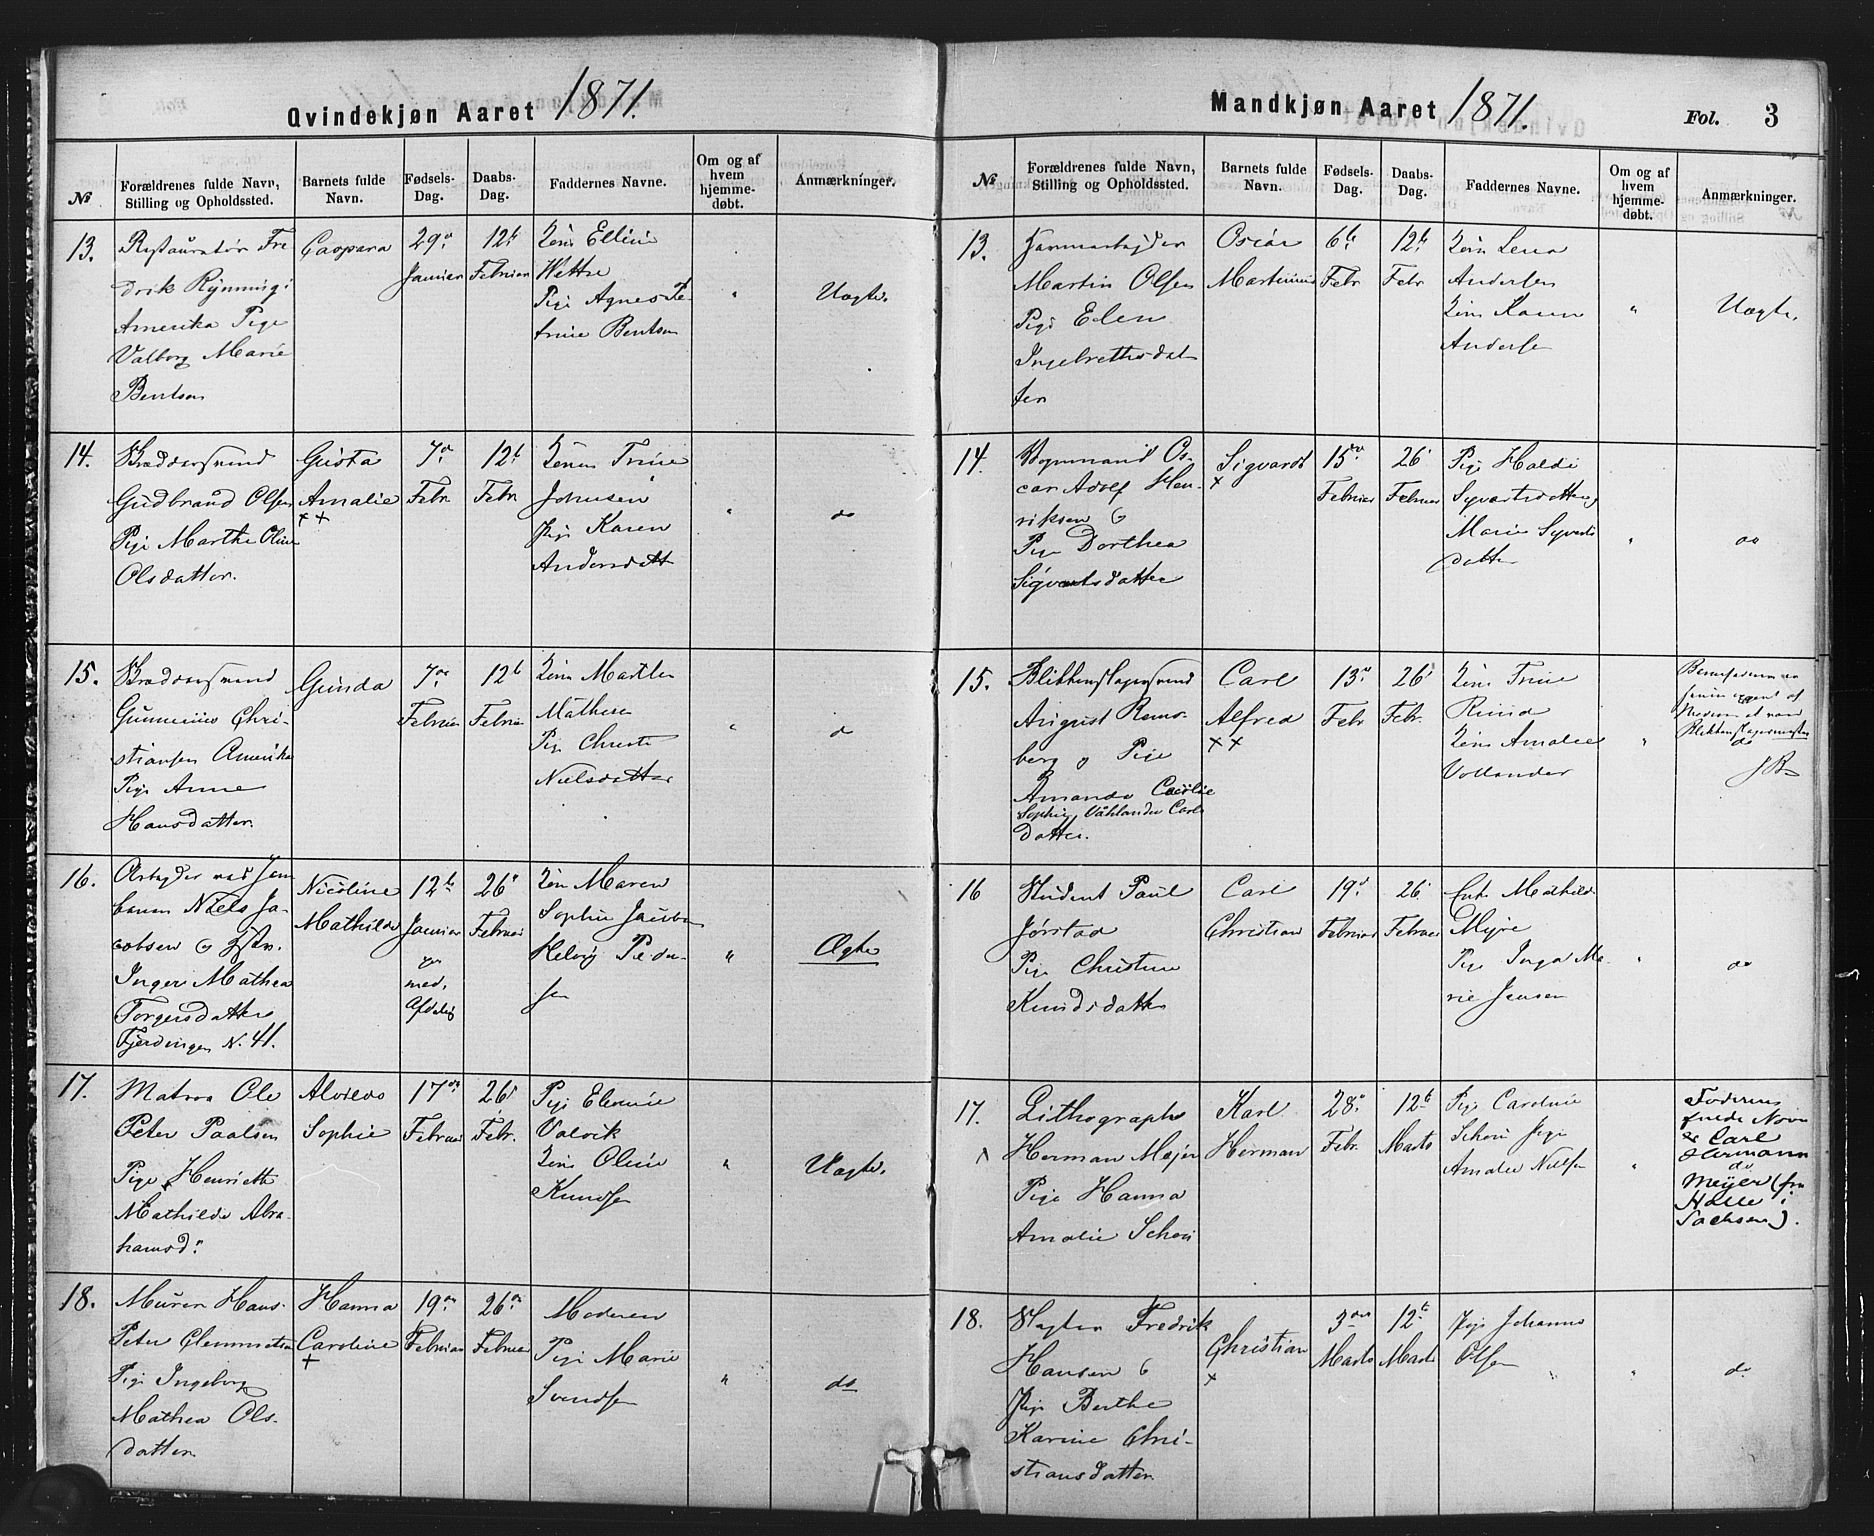 Qvindekjøn Aaret 1871.
No
Forældrenes fulde Navn, Stilling og Opholdssted.
Barnets fulde Navn.
Fødsels-Dag.
Daabs-Dag.
Faddernes Navne.
Om og af hvem hjemme-døbt.
Anmærkninger.
13.
Restauratør Fre
drik Rynning i
Amerika Pige
Valborg Marie
Bentsen
Caspara
29de
Januar
12te
Februar
Elline
Wettre
Pige Agnes Pe-
trine Bentsen
"
Uægte.
14.
Gudbrand Olsen
Pige Marthe Oline
Olsdatter.
Gusta
Amalie
××
7de
Febr.
12te
Febr.
Trine
Johnsen
Pige Karen
Andersdatt
"
do
15.
Gunnerius Chri-
stiansen Amerika
Pige Anne
Hansdatter.
Gunda
7de
Februar
12te
Februar
Mathea
Pige Christi
Nielsdatter
"
do
16.
Arbeyder ved Jern
banen Niels Ja-
cobsen og Hstr.
Inger Mathea
Torgersdatter
Fjerdingen N. 41.
Nicoline
Mathilde
12te
Januar
26de
Februar
Maren
Sophie Jacobsen
Helvig Peder-
sen
"
Ægte
17.
Matros Ole
Peter Paalsen
Pige Henriette
Mathilde Abra-
hamsd.
Sophie
17de
Februar
26de
Febr.
Pige Elenne
Valvik
Oline
Knudsen
"
Uægte.
18.
Murer Hans
Peter Clemmetsen
Pige Ingeborg
Mathea Ols-
datter
Hanna
Caroline
+
19de
Februar
26de
Februar
Moderen
Pige Marie
Svendsen
"
do
Mandkjøn Aaret 1871.
Fol. 3
No
Forældrenes fulde Navn, Stilling og Opholdssted.
Barnets fulde Navn.
Fødsels-Dag.
Daabs-Dag.
Faddernes Navne.
Om og af hvem hjemme-døbt.
Anmærkninger.
13.
Martin Olsen
Pige Elen
Ingebrethsdat
ter
Oscar
Martinius
6te
Febr
12te
Febr
Lena
Andersen
Karen
Andersen
"
Uægte.
14.
Vognmand Os-
car Adolf Hen-
riksen &
Pige Dorthea
Sigvartsdatter
Sigvardt
×
15de
Februar
26
Februar
Syvertsdatter
Marie Syverts
datter
"
do
15.
Blikkenslagersvend
August Rems-
berg og Pige
Amanda Cecilie
Sophie Våhlander Carls
datter.
Carl
Alfred
××
13de
Febr
26
Febr.
Trine
Rund
Amalie
Vollander
"
Blikkenslagermester
do
16
Student Paul
Jørstad
Pige Christine
Knudsdatter
Carl
Christian
19de
Februar
26
Februar
Enke Mathilde
Myre
Pige Inga Ma-
rie Jensen
"
do
17.
×
Lithograph
Herman Mejer
Pige Hanna
Amalie Schou
Karl
Herman
28de
Febr.
12te
Marts
Pige Caroline
Schou Pige
Amalie Nielsen
"
Faderens
fulde Navn
er Carl
Hermann
do
Meyer (fra
Halle i
Sachsen).
18.
Fredrik
Hansen &
Pige Berthe
Karine Chri-
stiansdatter
Christian
×
3die
Marts
12te
Marts
Pige Johanne
Olsen
"
do